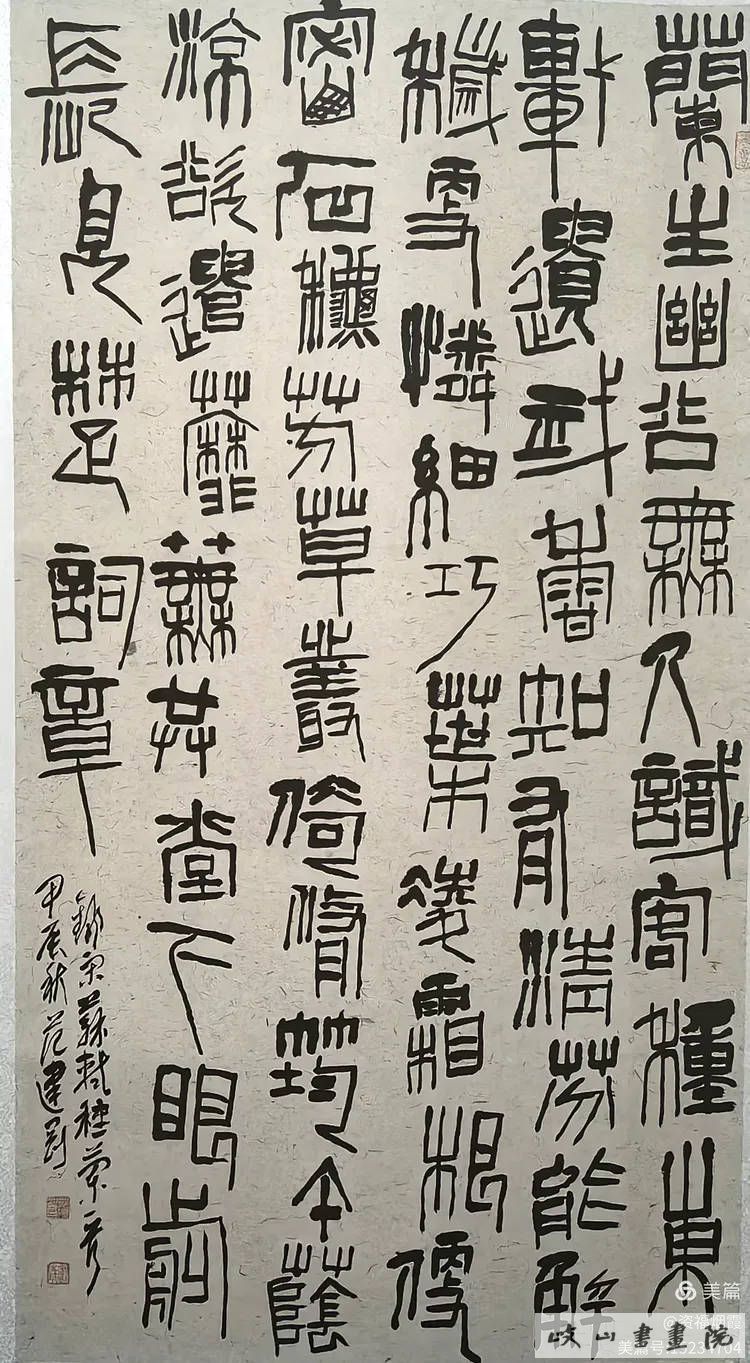 蘭生幽谷無人識客種東
軒遺我香知有清芬能解
穢更憐細巧葉凌霜根便
密石穐芳草叢倚脩筠午蔭
涼欲遣蘼蕪共堂下眼前
長見楚詞章
錄宋蘇種蘭一首
甲辰秋范建剛
美篇
岐山書畫院